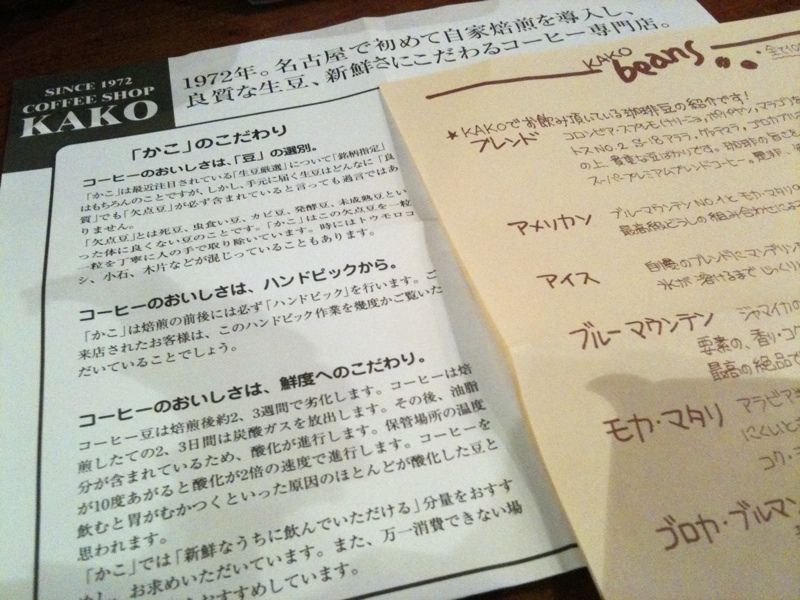 SINCE 1972
COFFEE SHOP
KAKO
1972年。名古屋で初めて自家焙煎を導入し、
良質な生豆、新鮮さにこだわるコーヒー専門店。
「かこ」のこだわり
コーヒーのおいしさは、「豆」の選別。
「かこ」は最近注目されている「生豆厳選」について「銘柄指定」
はもちろんのことですが、しかし、手元に届く生豆はどんなに「良
質」でも「欠点豆」が必ず含まれていると言っても過言ではあ
りません。
「欠点豆」とは死豆、虫食い豆、カビ豆、発酵豆、未成熟豆とい
った体に良くない豆のことです。「かこ」はこの欠点豆を一粒
一粒を丁寧に人の手で取り除いています。時にはトウモロコ
シ、小石、木片などが混じっていることもあります。
コーヒーのおいしさは、ハンドピックから。
「かこ」は焙煎の前後には必ず「ハンドピック」を行います。ご
来店されたお客様は、このハンドピック作業を幾度かご覧いた
だいていることでしょう。
コーヒーのおいしさは、鮮度へのこだわり。
コーヒー豆は焙煎後約2、3週間で劣化します。コーヒーは焙
煎したての2、3日間は炭酸ガスを放出します。その後、油脂
分が含まれているため、酸化が進行します。保管場所の温度
が10度あがると酸化が2倍の速度で進行します。コーヒーを
飲むと胃がむかつくといった原因のほとんどが酸化した豆と
思われます。
「かこ」では「新鮮なうちに飲んでいただける」分量をおすす
めし、お求めいただいています。また、万一消費できない場
をおすすめしています。
KAKO
beans
★KAKOでお飲み頂いている珈琲豆の紹介です!
ブレンド
コロンビア・スプレモ
トスNO.2
の上、貴重な豆ばかりです。珈琲の
スーパープレミアムブレンドコーヒー。
アメリカン
ブルーマウンテンNO.1とモカ・マタリ
最高級どうしの組み合わせによる
アイス
自慢のブレンドにマンデリン
氷が溶けるまでじっくり
ブルーマウンテン
ジャマイカの
要素の、香り・コク
最高の絶品で
モカ・マタリ
アラビア
にくいと
コク・
ゴロカ・ブルマン